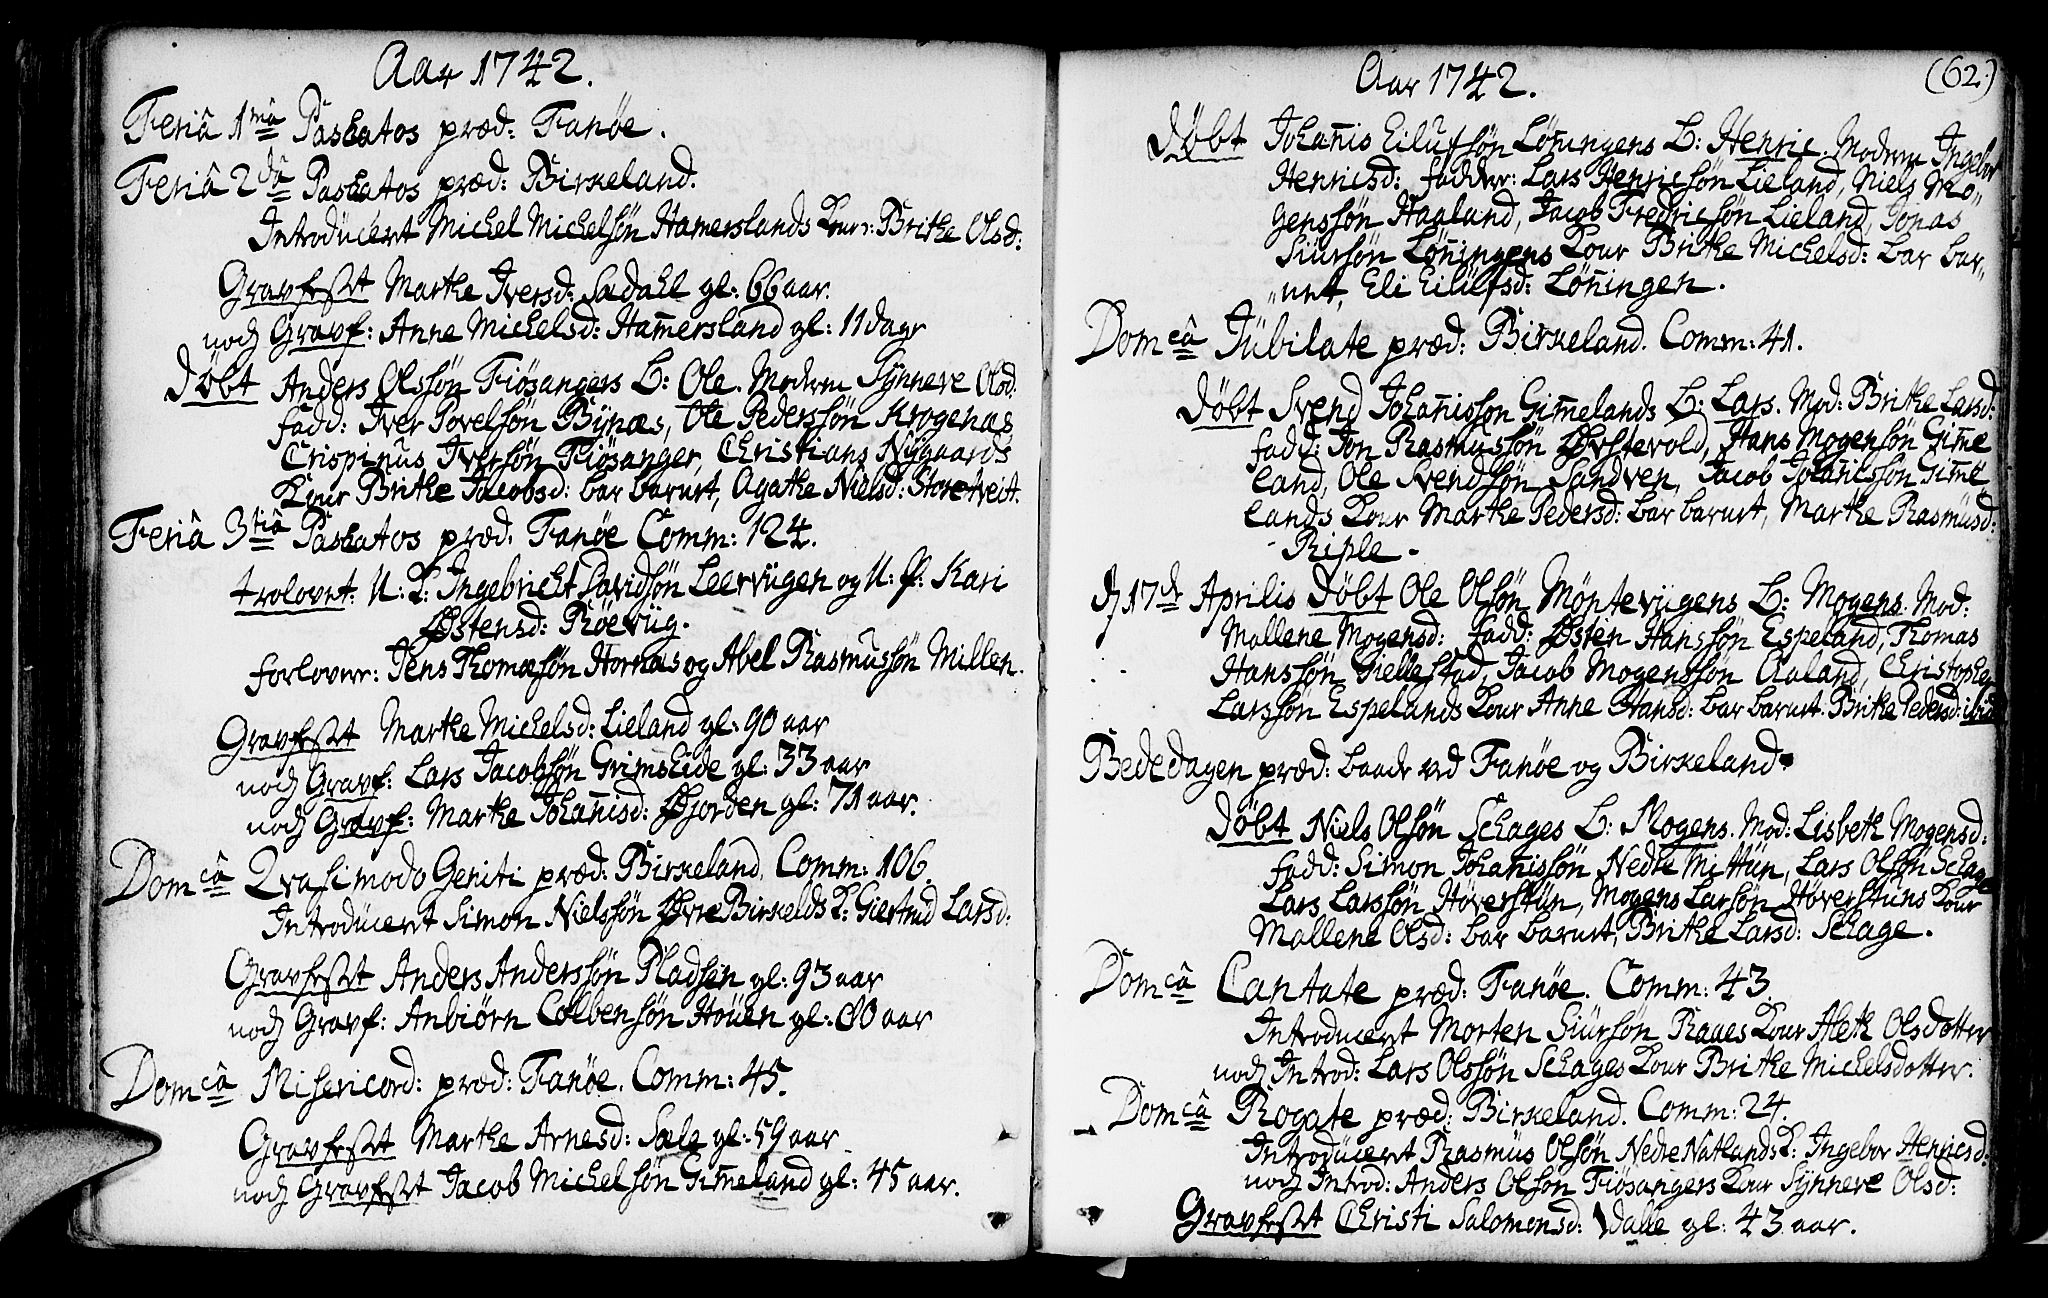 Aar 1742.
Feriâ 1mâ Paschatos præd: Fanöe.
Feriâ 2dâ Paschatos præd: Birkeland.
Introduceret Michel Michelsön Hamerslands Konr: Brithe Olsd:
Gravfestet Marthe Iversd: Sædahl gl: 66 aar.
noch Gravf: Anne Michelsd: Ham̄ersland gl: 11 dage
Döbt Anders Olssön Fiösangers B: Ole. Moderen Synneve Olsd:
fadd: Iver Povelsön Bÿnæs, Ole Pederssön Krogenæs,
Crispinus Iversön Fiösanger, Christians Nÿgaards
Kone Brithe Jacobsd: bar barnet, Agathe Nielsd: Storetveit.
Feriâ 3tiâ Paschatos præd: Fanöe Comm: 124.
trolovet: U: K: Ingebricht Davidsön Leervügen og U: P: Kari
Østensd: Röevüg.
forlovere: Jens Thomæsön Hornæs og Abel Rasmussön Millen.
Gravfestet Marthe Michelsd: Lieland gl: 90 aar
noch Gravf: Lars Jacobsön Grimseide gl: 33 aar
noch Gravf: Marthe Johan̄isd: Øjorden gl: 71 aar.
Domcâ Qvasimodo Geniti præd: Birkeland. Comm: 106.
Introduceret Simon Nielssön Øvre Birkelds K: Giertrud Larsd:
Gravfestet Anders Anderssön Pladsen gl: 93 aar
noch Gravf: Anbiörn Colbensön Höuen gl: 80 aar
Domcâ Misericord: præd: Fanöe. Comm: 45.
Gravfestet Marthe Arnesd: Sæle gl: 59 aar
noch Gravfestet Jacob Michelsön Gim̄eland gl: 45 aar.
(62)
Aar 1742.
Döbt Johan̄is Eilufsön Lön̄ingens B: Henric. Moderen Ingebor
Henricsd: faddere: Lars Henricsön Lieland, Niels Mo-
genssön Hagland, Jacob Fredricsön Lieland, Jonas
Siursön Lön̄ingens Kone Brithe Michelsd: bar bar-
net, Eli Eilufsd: Lön̄ingen.
Domcâ Jubilate præd: Birkeland. Comm: 41.
Döbt Svend Johan̄isson Gim̄elands B: Lars. Mod: Brithe Larsd:
fadd: Jon Rasmussön Øvstevold, Hans Mogensön Gim̄e
land, Ole Svendsön Sandven, Jacob Johan̄issön Gim̄e
lands Kone Marthe Pedersd: bar barnet, Marthe Rasmusd:
Riple.
d 17de Aprilis Döbt Ole Olsön Möntevügens B: Mogens. Mod:
Mallene Mogensd: fadd: Østen Hanssön Espeland, Thomas
Hanssön Giellestad, Jacob Mogenssön Aaland, Christopher
Larssön Espelands Kone Anne Hansd: bar barnet. Brithe Pedersd: ibid
Bededagen præd: baade ved Fanöe og Birkeland.
Döbt Niels Olsön Schages B: Mogens. Mod: Lisbeth Mogensd:
fadd: Simon Johan̄issön Nedre Mittün, Lars Olsön Schage
Lars Larssön Höverstün, Mogens Larsön Höverstüns Kone
Mallene Olsd: bar barnet, Brithe Larsd: Schage.
Domcâ Cantate præd: Fanöe. Comm: 43.
Introduceret Morten Siursön Raaes Kone Aleth Olsdotter
noch Introd: Lars Olssön Schages Kone Brithe Michelsdotter.
Domcâ Rogate præd: Birkeland. Comm: 24.
Introduceret Rasmus Olsön Nedre Natlands K: Ingebor Henricsd:
noch Introd: Anders Olsön Fiösangers Kone Synneve Olsd:
Gravfestet Christi Salomonsd: Dalle gl: 43 aar.